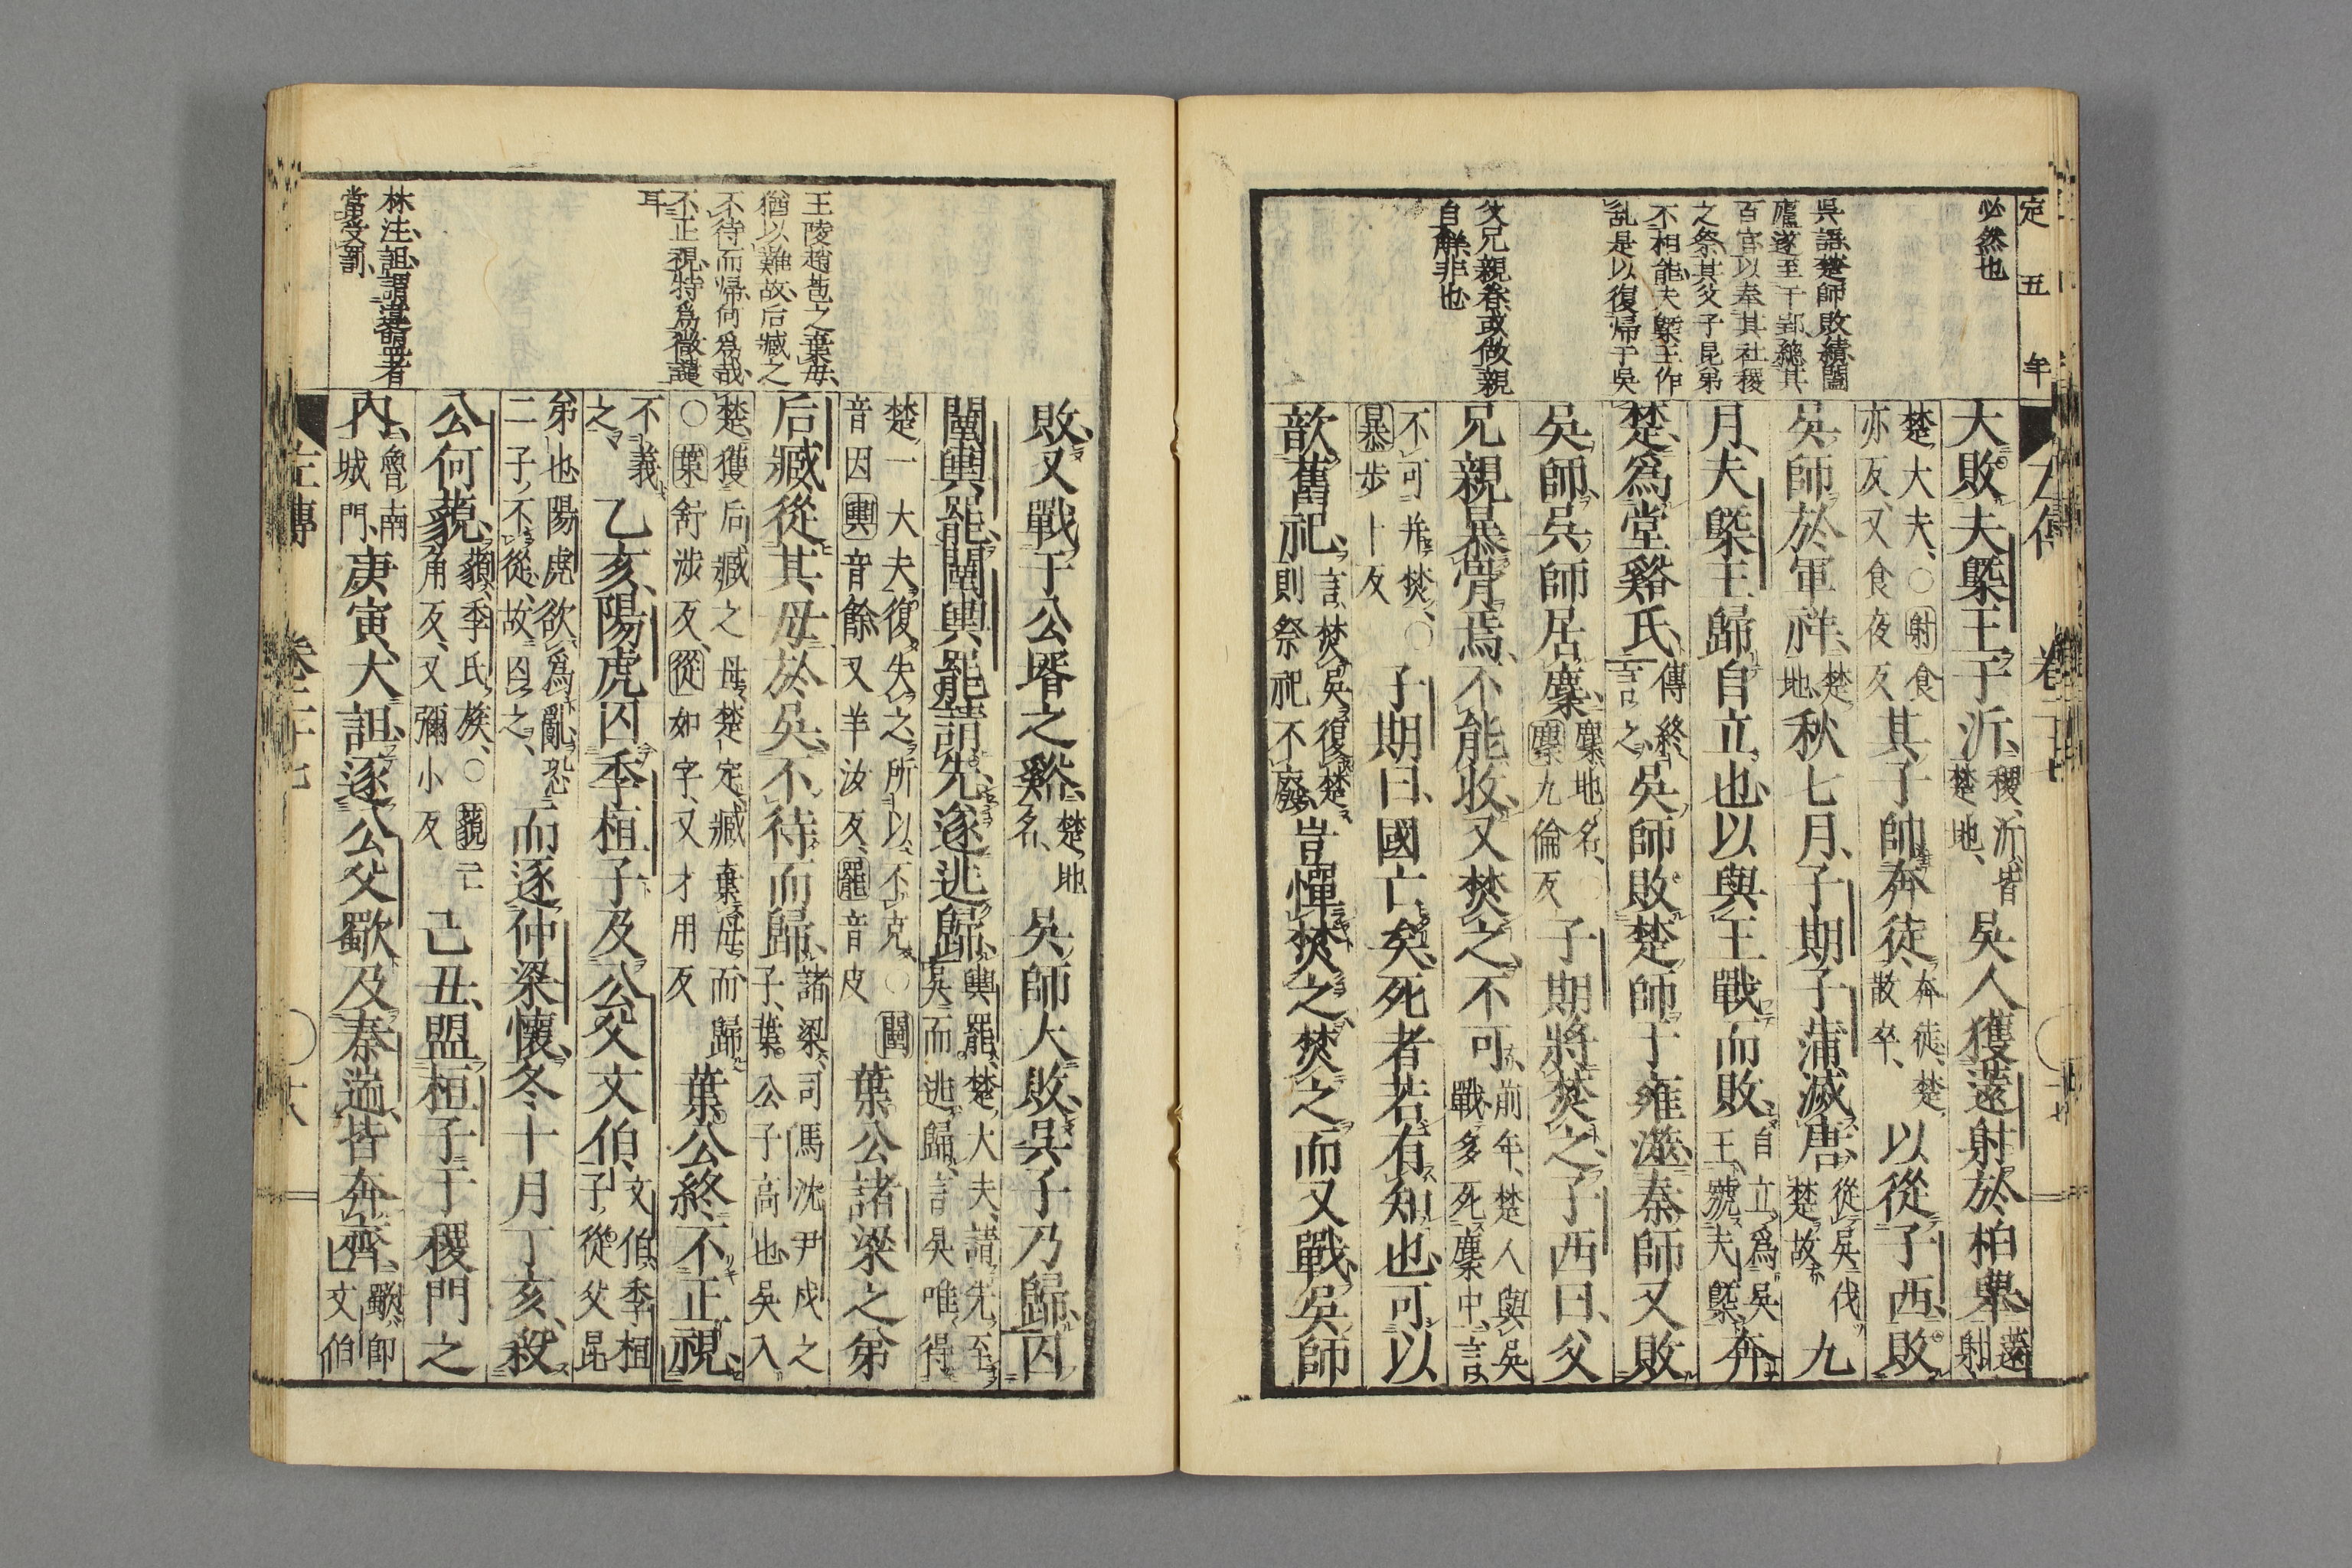 定五年
必然也
吳語楚師敗績闔
廬遂至于郢緫其
百官以奉其社稷
之祭其父子昆弟
不相能夫槩王作
乱是以復帰于吳
父兄親眷或做親
自解非也
左傳 卷二十七
大敗夫槩王于沂稷沂皆楚地吳人獲薳射於柏舉薳射
楚大夫○射食亦反又食夜反其子帥奔徒奔徒楚散卒以從子西敗
吳師於軍祥楚地秋七月子期子蒲滅唐從吳伐楚故九
月夫槩王歸自立也以與王戰而敗自立爲吳王號夫槩奔
楚爲堂谿氏傳終言之吳師敗楚師于雍澨秦師又敗
吳師吳師居麇麇地名麇九倫反子期將焚之子西曰父
兄親暴骨焉不能收又焚之不可前年楚人與吳戰多死麇中言
不可并焚○暴步卜反子期曰國亡矣死者若有知也可以
歆舊祀言焚吳復楚則祭祀不廢豈憚焚之焚之而又戰吳師
王陵趙苞之棄母
猶以難故后臧之
不待而帰何爲哉
不正視特爲微譴
耳
林注詛謂違盟者
當受罰
敗又戰于公壻之谿楚地名吳師大敗吳子乃歸囚
闉輿罷闉輿罷請先遂逃歸輿罷楚大夫請先至吳而逃歸言吳唯得
楚一大夫復失之所以不克○闉音因輿音餘又羊汝反罷音皮葉公諸梁之弟
后臧從其母於吳不待而歸諸梁司馬沈尹戌之子葉公子高也吳入
楚獲后臧之母楚定臧棄母而歸○葉舒涉反從如字又才用反葉公終不正視
不義之乙亥陽虎囚季桓子及公父文伯文伯季桓子從父昆
弟也陽虎欲爲亂恐二子不從故囚之而逐仲梁懷冬十月丁亥殺
公何藐藐季氏族○藐亡角反又彌小反己丑盟桓子于稷門之
內魯南城門庚寅大詛逐公父歜及秦遄皆奔齊歜即文伯
左傳 卷二十七 十八